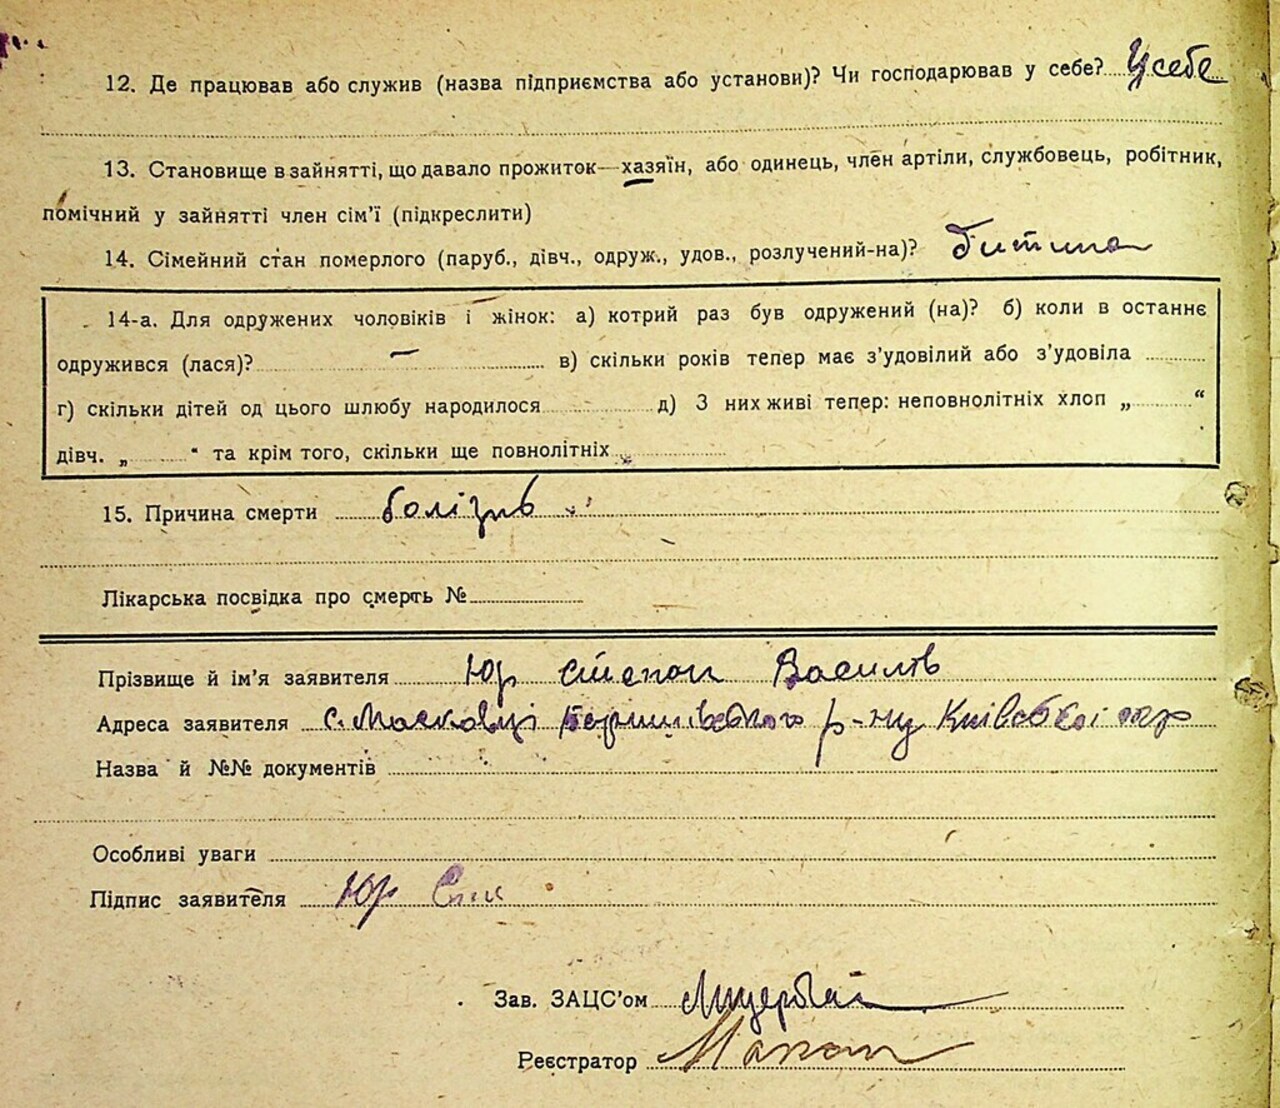 12. Де працював або служив (назва підприємства або установи)? Чи господарював у себе? У себе
13. Становище в зайнятті, що давало прожиток—хазяїн, або одинець, член артіли, службовець, робітник,
помічний у зайнятті член сім'ї (підкреслити)
14. Сімейний стан померлого (паруб., дівч., одруж., удов., розлучений-на)? дитина
14-а. Для одружених чоловіків і жінок: а) котрий раз був одружений (на)? б) коли в останнє
одружився (лася)? — в) скільки років тепер має з'удовілий або з'удовіла
г) скільки дітей од цього шлюбу народилося д) З них живі тепер: неповнолітніх хлоп „ “
дівч. „ “ та крім того, скільки ще повнолітніх
15. Причина смерти болізнь
Лікарська посвідка про смерть №
Прізвище й ім'я заявителя Юр Степан Василів
Адреса заявителя с. Масківці Баришівського р-ну Київської
Назва й №№ документів
Особливі уваги
Підпис заявителя Юр
Зав. ЗАЦС'ом
Реєстратор